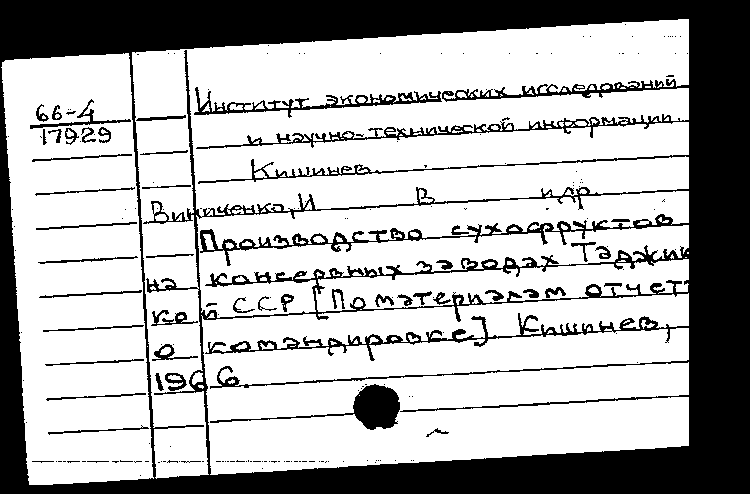 66-4
17929
Институт экономических исследований
и научно-технической информации.
Кишинев.
Виниченко, И В и др
Производство сухофруктов
на консервных заводах Таджик
кой ССР [По материалам отчет
о командировке]. Кишинев,
1966.